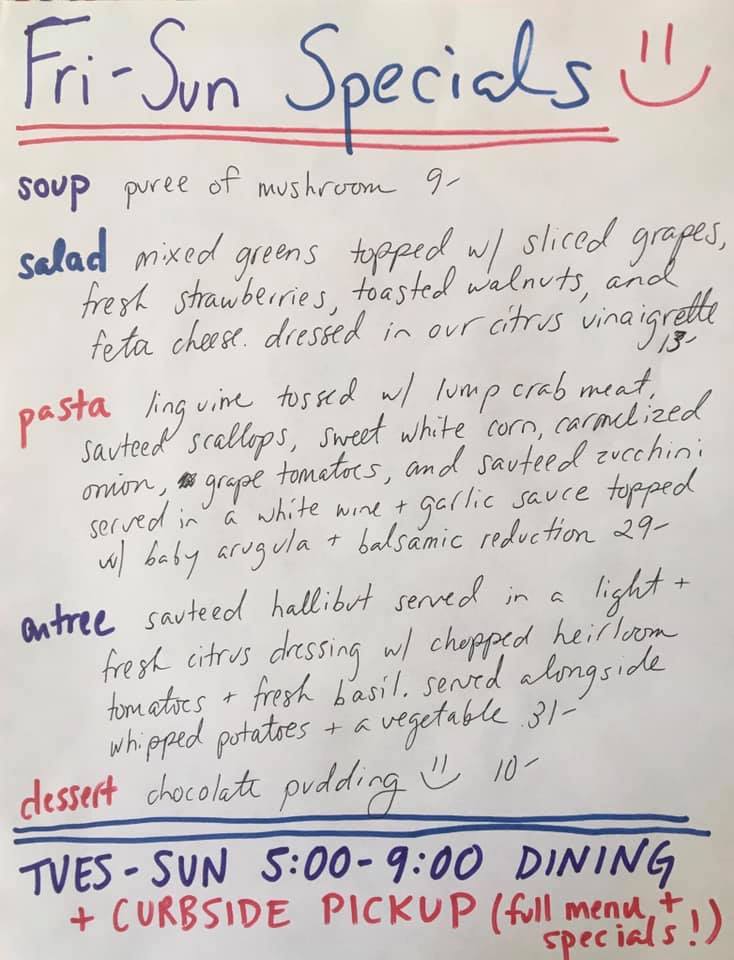 Fri-Sun Specials
soup puree of mushroom 9-
salad mixed greens topped w/ sliced grapes,
fresh strawberries, toasted walnuts, and
feta cheese. dressed in our citrus vinaigrette
13-
pasta linguine tossed w/ lump crab meat,
sauteed scallops, sweet white corn, carmelized
onion, grape tomatoes, and sauteed zucchini
served in a white wine + garlic sauce topped
w/ baby arugula + balsamic reduction 29-
entree sauteed hallibut served in a light +
fresh citrus dressing w/ chopped heirloom
tomatoes + fresh basil. served alongside
whipped potatoes + a vegetable 31-
dessert chocolate pudding 10-
TUES-SUN 5:00-9:00 DINING
+ CURBSIDE PICKUP (full menu +
specials!)